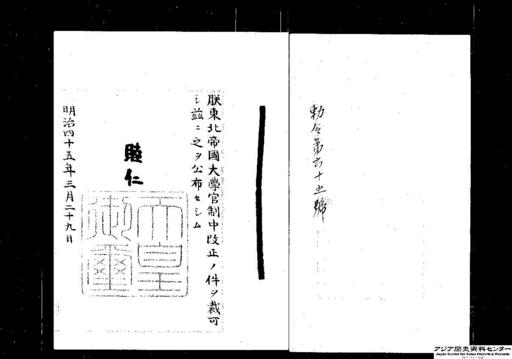 勅令第六十五號
朕東北帝國大學官制中改正ノ件ヲ裁可
シ玆ニ之ヲ公布セシム
睦仁
天皇御璽
明治四十五年三月二十九日
アジア歴史資料センター
Japan Center for Asian Historical Records